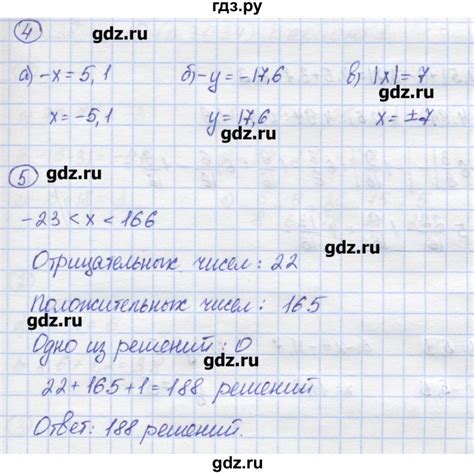 гдз.ру
4
gdz.ru
gdz.ru
а) -x = 5,1 б) -y = -17,6 в) |x| = 7
x = -5,1 y = 17,6 x = ±7.
gdz.ru
gdz.ru
5
gdz.ru
-23 < x < 166
gdz.ru
Отрицательных чисел: 22
Положительных чисел: 165
gdz.ru
gdz.ru
Одно из решений: 0
22 + 165 + 1 = 188 решений
gdz.ru
Ответ: 188 решений.
gdz.ru